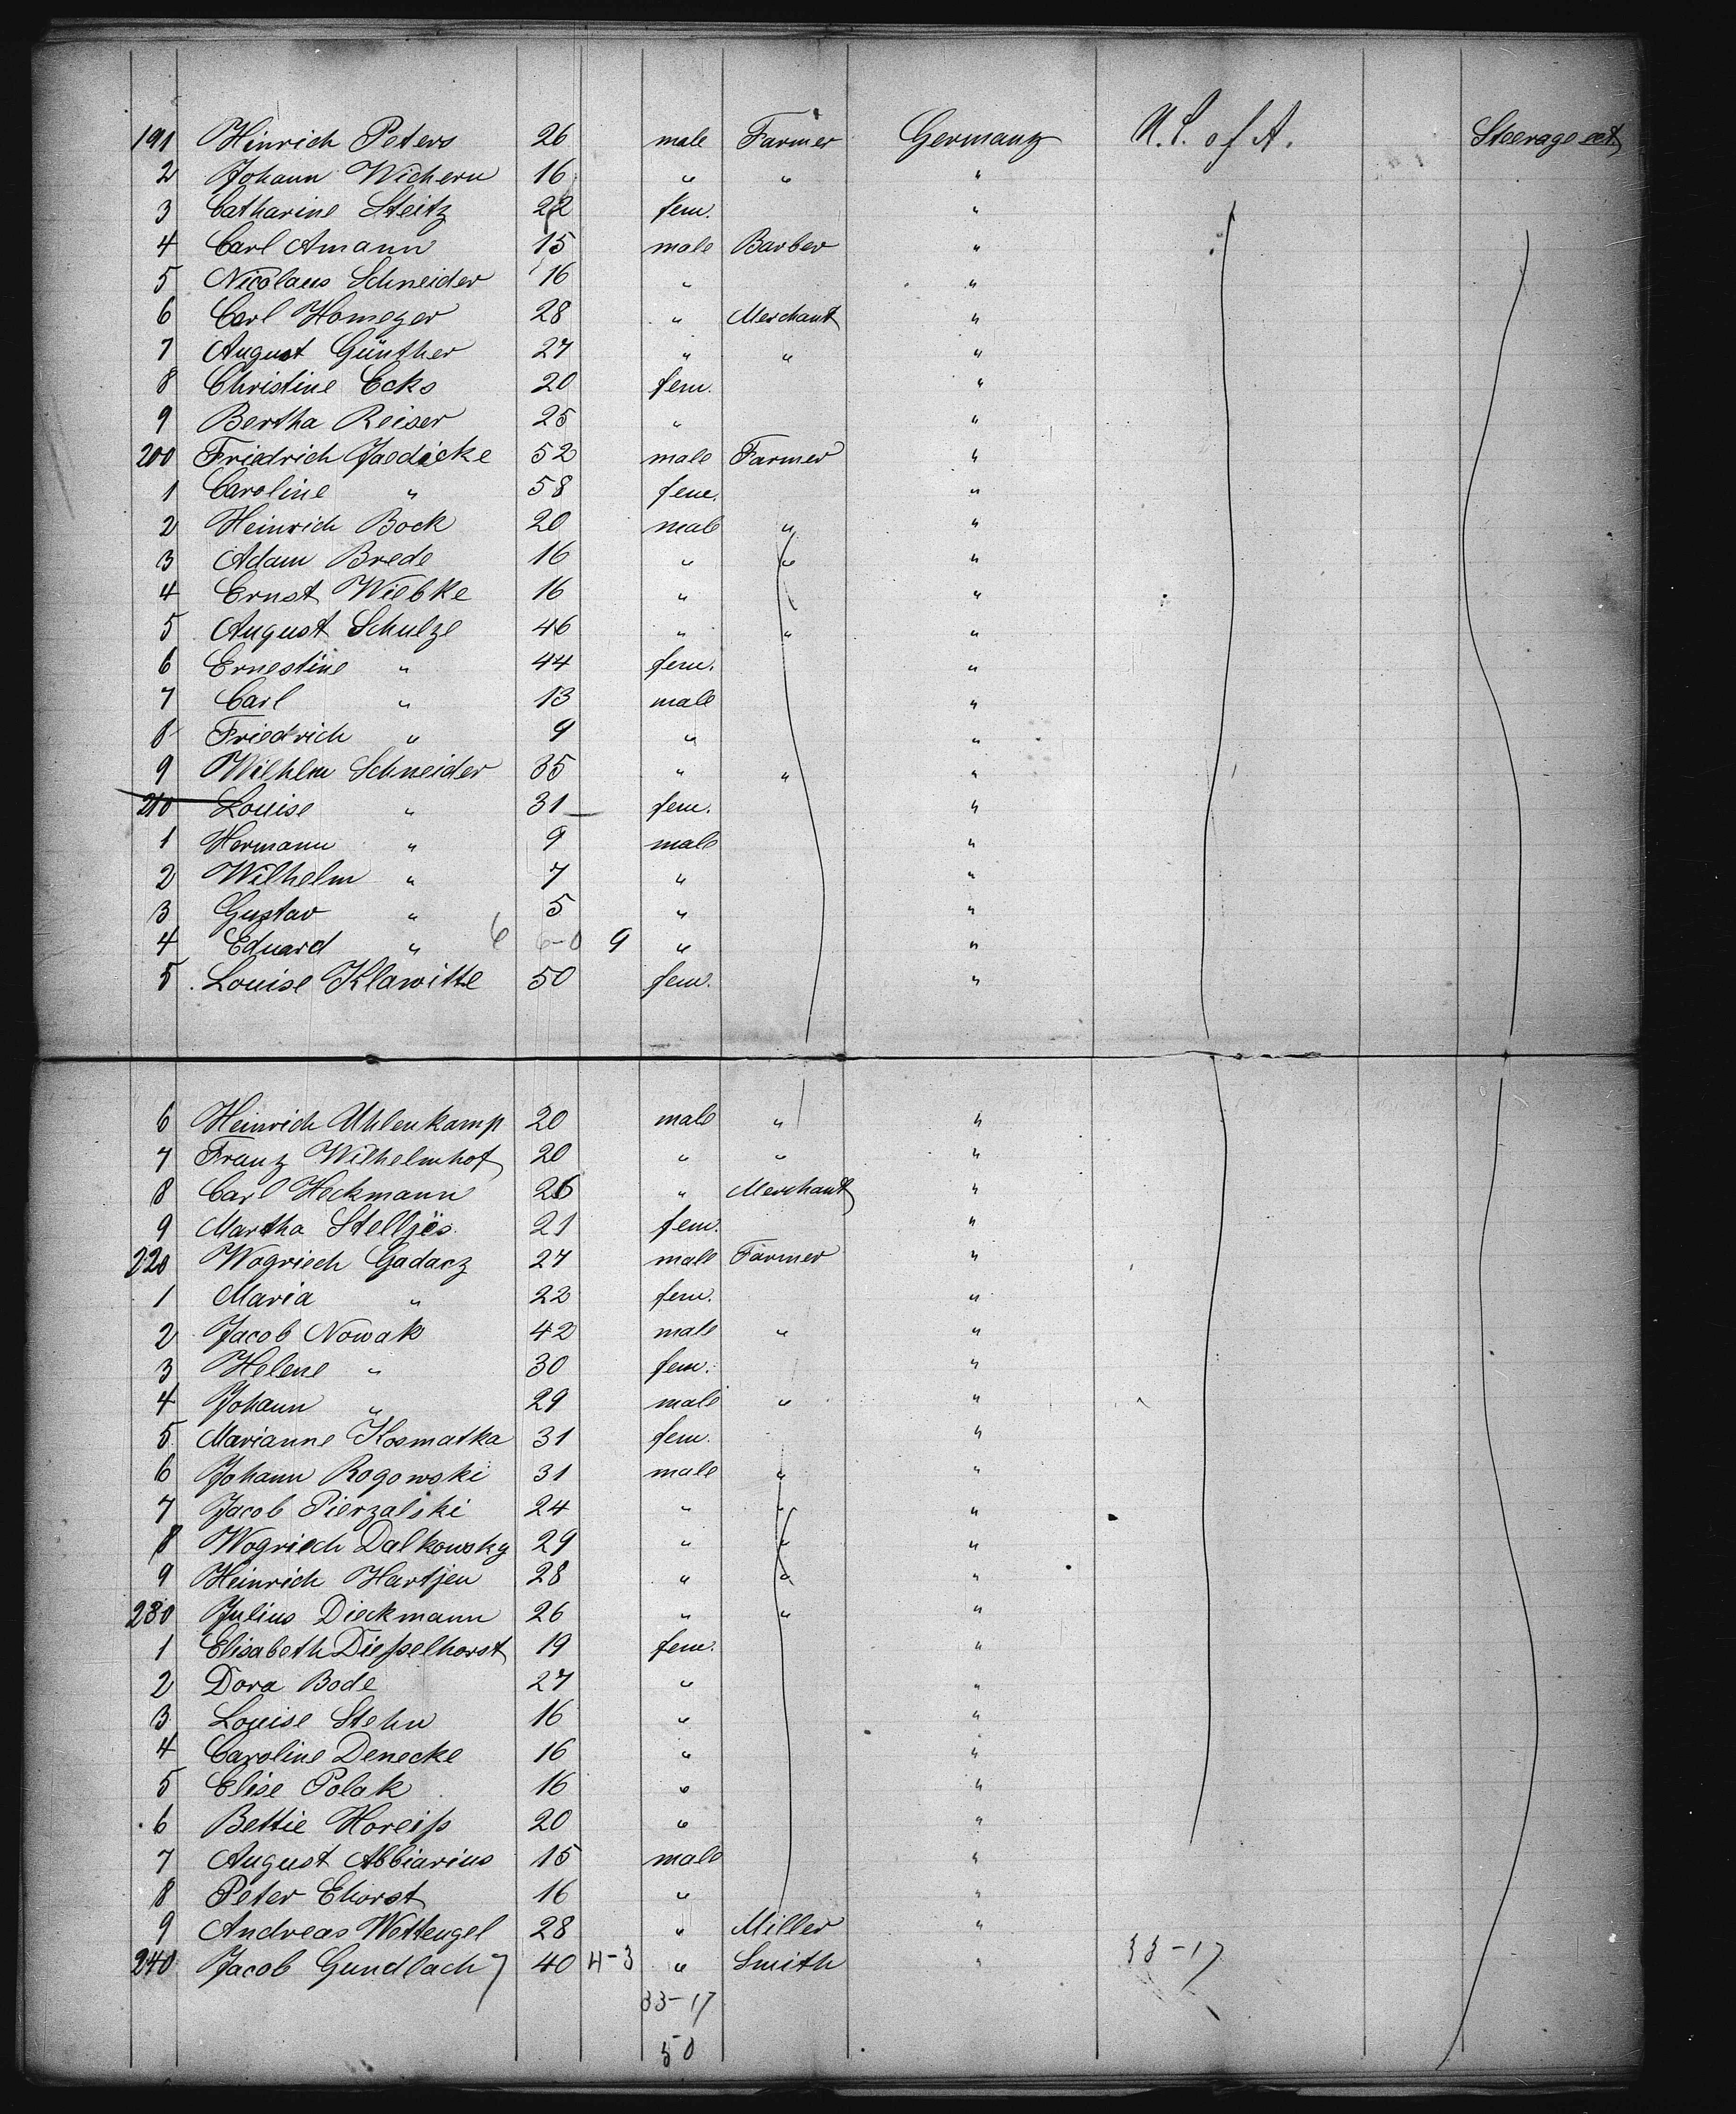 191 Hinrich Peters 26 male Farmer Germany U.S. of A. Steerage
2 Johann Wichern 16 " " "
3 Catharine Steitz 22 fem. "
4 Carl Amann 15 male Barber "
5 Nicolaus Schneider 16 " "
6 Carl Homeyer 28 " Merchant "
7 August Günther 27 " " "
8 Christine Ecks 20 fem. "
9 Bertha Reiser 25 " "
200 Friedrich Jaedicke 52 male Farmer "
1 Caroline " 58 fem. "
2 Heinrich Bock 20 male " "
3 Adam Brede 16 " " "
4 Ernst Wiebke 16 " "
5 August Schulze 46 " " "
6 Ernestine " 44 fem. "
7 Carl " 13 male "
8 Friedrich " 9 " "
9 Wilhlm Schneider 35 " " "
210 Louise " 31 fem. "
1 Hermann " 9 male "
2 Wilhelm " 7 " "
3 Gustav " 5 " "
4 Eduard " 6 6-0 9 " "
5 Louise Klawitte 50 fem. "
6 Heinrich Uhlenkamp 20 male " "
7 Franz Wilhelmhof 20 " " "
8 Carl Heckmann 26 " Merchant "
9 Martha Stelljes 21 fem. "
220 Wogriech Gadacz 27 male Farmer "
1 Maria " 22 fem. "
2 Jacob Nowak 42 male " "
3 Helene " 30 fem. "
4 Johann " 29 male " "
5 Marianne Kosmatka 31 fem. "
6 Johann Rogowski 31 male " "
7 Jacob Pierzalski 24 " " "
8 Wogriech Dalkowsky 29 " " "
9 Heinrich Hartjen 28 " " "
230 Julius Dieckmann 26 " " "
1 Elisabeth Dieſselhorst 19 fem. "
2 Dora Bode 27 " "
3 Louise Stehn 16 " "
4 Caroline Denecke 16 " "
5 Elise Polak 16 " "
6 Bettie Horeiſs 20 " "
7 August Abbiarius 15 male "
8 Peter Ehorst 16 " "
9 Andreas Wettengel 28 " Miller "
240 Jacob Gundlach 7 40 4-3 " Smith " 33-17
33-17
50